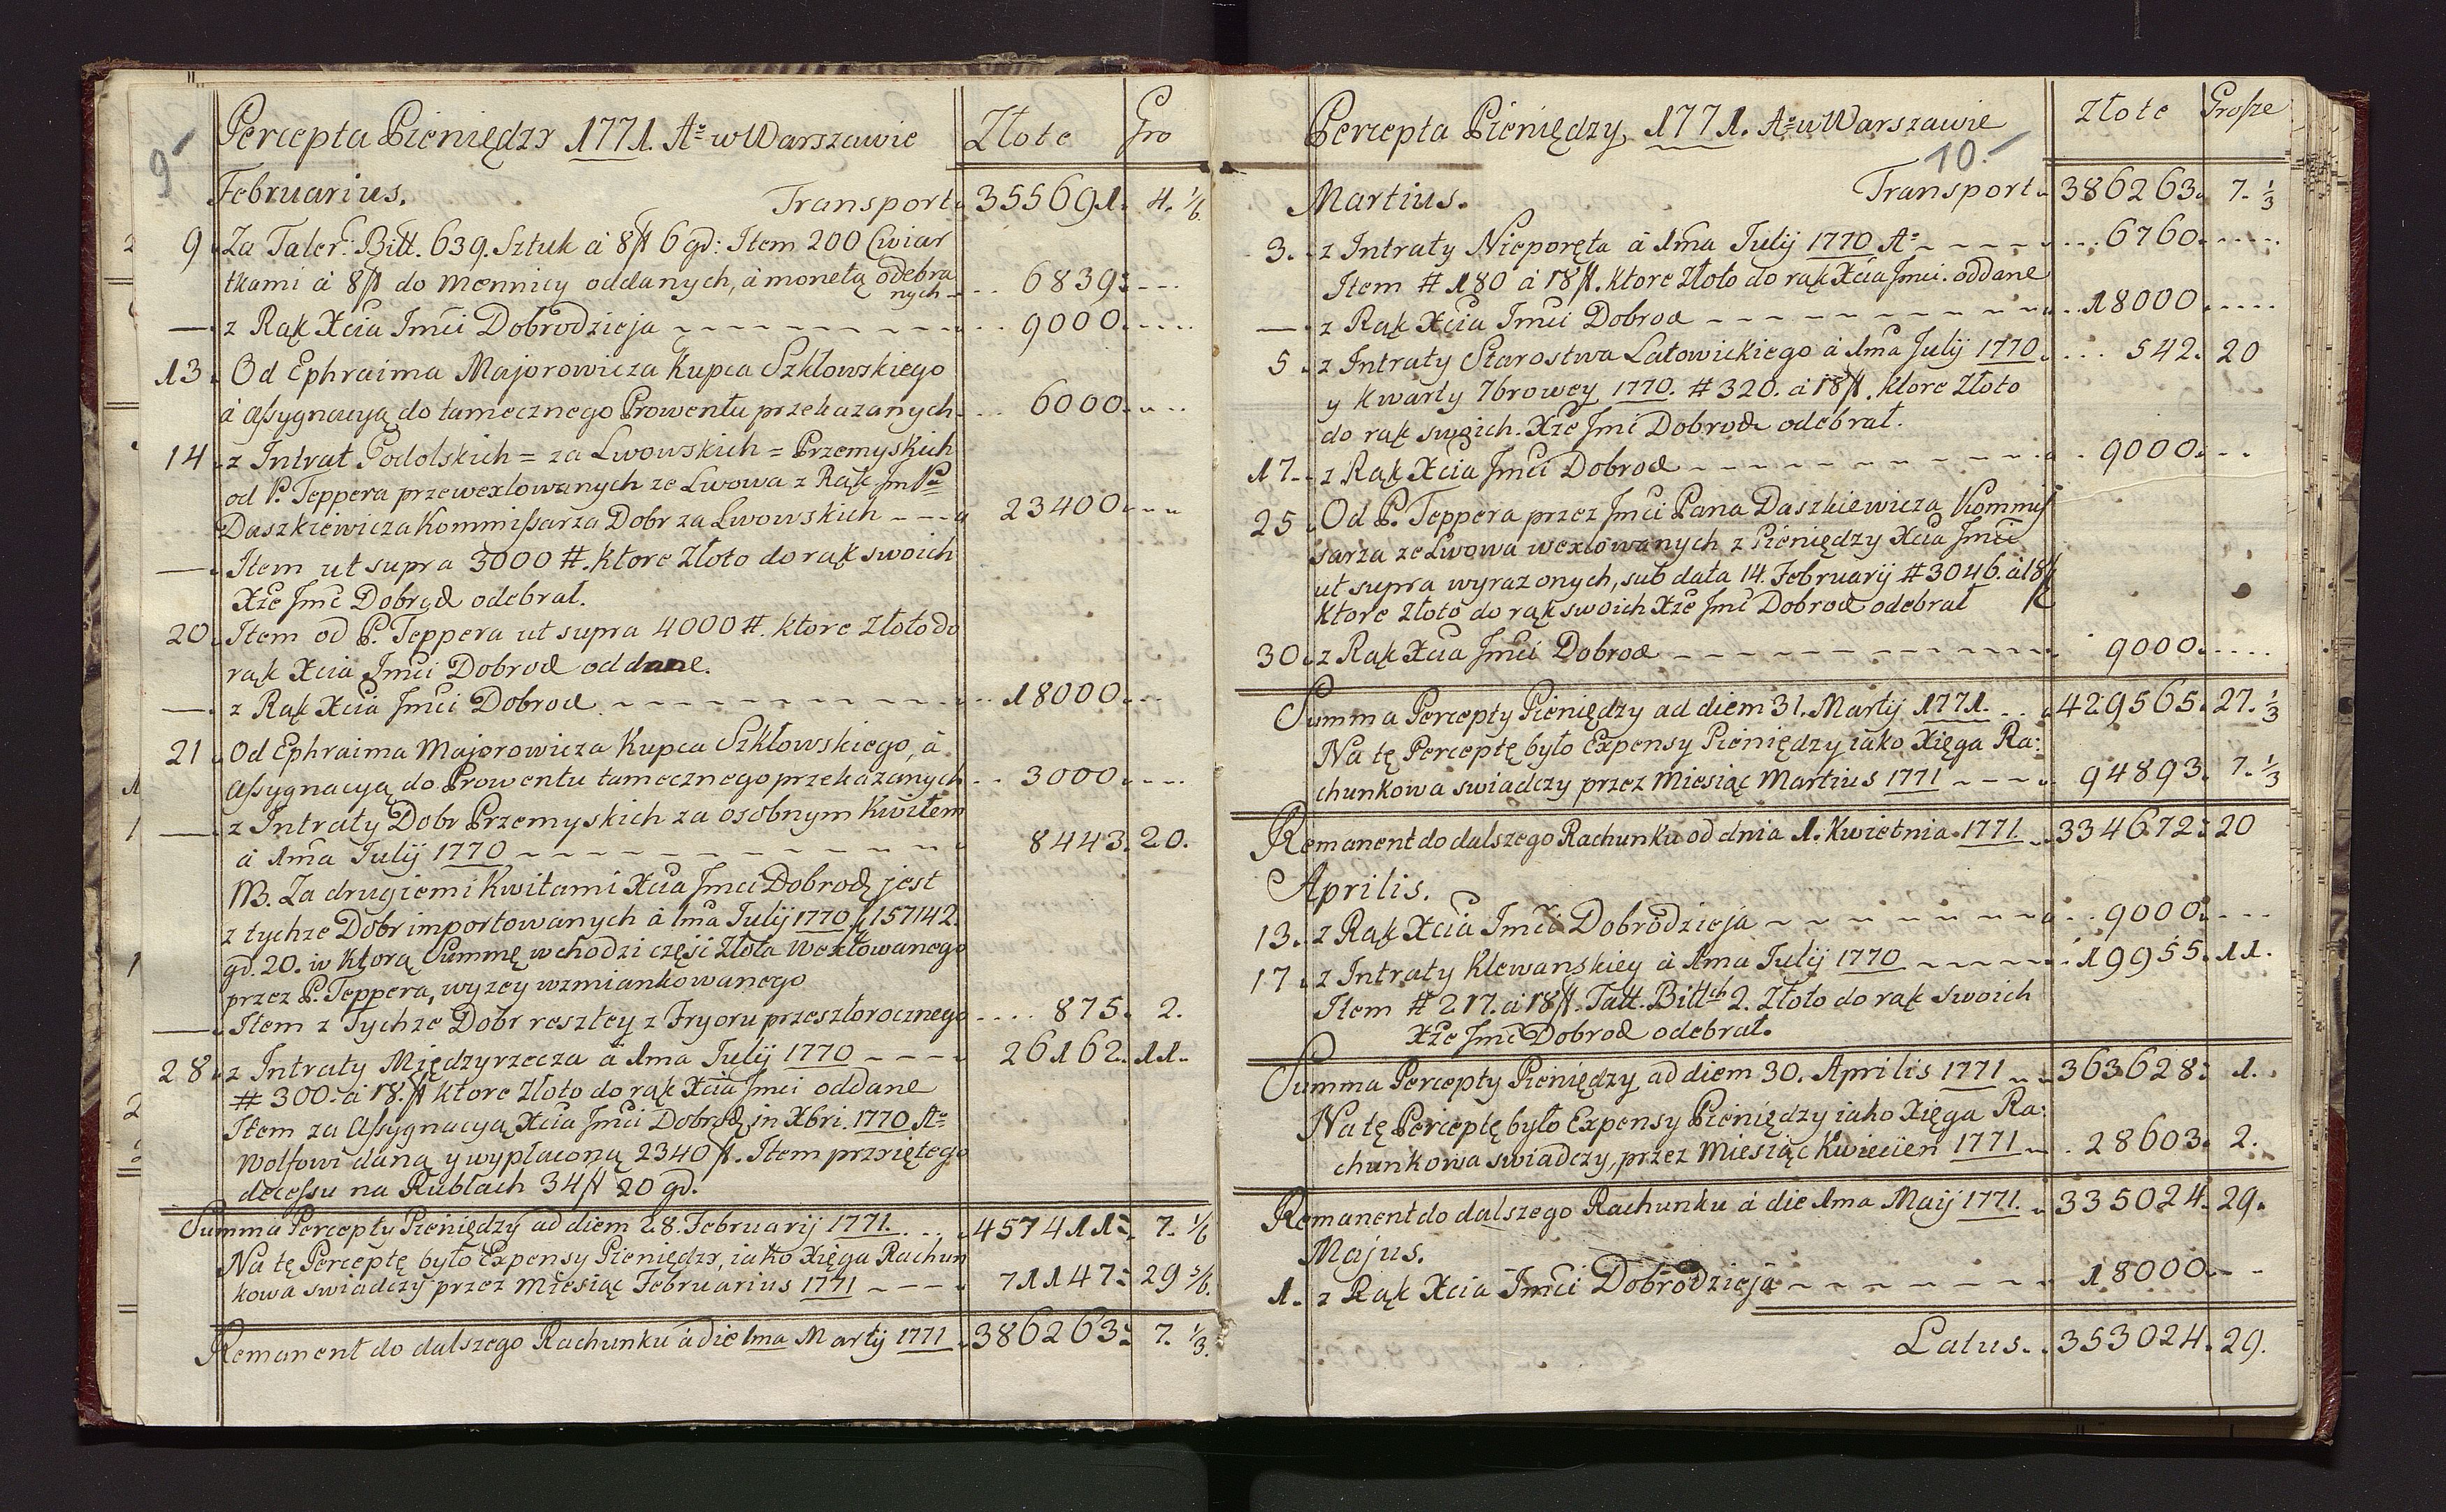 9-
Percepta Pieniędzy 1771. Aº w Warszawie Złote Gro
Februarius. Transport. 355691. 4. 1/6.
9. Za Taler: Bitt. 639. Sztuk à 8 fl 6 gd: Item 200 Cwiar
tkami à 8 fl do Mennicy oddanych, à monetą odebra
nych - .. 6839: ---
— z Rąk Xcia Jmci Dobrodzieja ~ ~ ~ .. 9000. ....
13. Od Ephraima Majorowicza Kupca Szkłowskiego
à assygnacyą do tamecznego Prowentu przekazanych .. 6000. ...
14. z Intrat Podolskich = za Lwowskich = Przemyskich
od P. Teppera przewexlowanych ze Lwowa z Rąk Jm Pa
Daszkiewicza Kommissarza Dobr za Lwowskich --- 23400. ---
— Item ut supra 3000 #. ktore Złoto do rąk swoich
Xże Jmć Dobrod odebrał.
20. Item od P. Teppera ut supra 4000 #. ktore Złoto do
rąk Xcia Jmci Dobrod oddane.
— z Rąk Xcia Jmci Dobrod. ~ ~ ~ .. 18000. ...
21. Od Ephraima Majorowicza Kupca Szkłowskiego, à
assygnacyą do Prowentu tamecznego przekazanych .. 3000. ....
— z Intraty Dobr Przemyskich za osobnym Kwitem
à 1ma Julij 1770 ~ ~ ~ 8443. 20.
NB. Za drugiemi Kwitami Xcia Jmci Dobrod jest
z tychze Dobr importowanych à 1ma Julij 1770 fl 157142.
gd. 20. w ktorą Summę wchodzi część Złota Wexlowanego
przez P. Teppera, wyzey wzmiankowanego
— Item z Tychze Dobr resztey z Fryoru przeszłorocznego .... 875. 2.
28. z Intraty Międzyrzecza à 1ma Julij 1770 --- 26162. 11.
# 300. à 18. fl ktore Złoto do rąk Xcia Jmci oddane
Item za Assygnacyą Xcia Jmci Dobrod in Xbri. 1770 Aº
Wolfowi daną y wypłaconą 2340 fl. Item przyiętego
decessu na Rublach 34 fl 20 gd.
Summa Percepty Pieniędzy ad diem 28. Februarij 1771. ... 457411: 7. 1/6
Na tę Perceptę było Expensy Pieniędzy, iako Xięga Rachun
kowa swiadczy przez Miesiąc Februarius 1771 --- 71147: 29 5/6.
Remanent do dalszego Rachunku à die 1ma Martij 1771 386263: 7. 1/3.
Percepta Pieniędzy 1771. Aº w Warszawie Złote Grosze
10.-
Martius. Transport. 386263. 7. 1/3
3. z Intraty Nieporęta à 1ma Julij 1770 Aº ---- ... 6760. .....
Item # 180 à 18 fl. ktore Złoto do rąk Xcia Jmci. oddane
— z Rąk Xcia Jmci Dobrod ---- .. 18000. ....
5. z Intraty Starostwa Latowickiego à 1ma Julij 1770. ... 542. 20
y Kwarty 7browey 1770. # 320. à 18 fl. ktore Złoto
do rąk swoich. Xże Jmć Dobrod odebrał.
17. z Rąk Xcia Jmci Dobrod ---- . 9000. ...
25. Od P. Teppera przez Jmci Pana Daszkiewicza Kommis
sarza ze Lwowa wexlowanych z Pieniędzy Xcia Jmci
ut supra wyrazonych, sub data 14. Februarij # 3046. à 18 fl
ktore Złoto do rąk swoich Xże Jmć Dobrod odebrał
30. z Rąk Xcia Jmci Dobrod ---- 9000. ....
Summa Percepty Pieniędzy ad diem 31. Martij 1771. ... 429565. 27. 1/3
Na tę Perceptę było Expensy Pieniędzy iako Xięga Ra:
chunkowa swiadczy przez Miesiąc Martius 1771 --- 94893. 7. 1/3
Remanent do dalszego Rachunku od dnia 1. Kwietnia 1771 334672: 20
Aprilis.
13. z Rąk Xcia Jmci Dobrodzieja ~ ~ ~ .. 9000. ...
17. z Intraty Klewanskiey à 1ma Julij 1770 ---- 19955. 11.
Item # 217. à 18 fl. Tall. Bittch 2. Złoto do rąk swoich
Xże Jmć Dobrod odebrał.
Summa Percepty Pieniędzy ad diem 30. Aprilis 1771 363628: 1.
Na tę Perceptę było Expensy Pieniędzy iako Xięga Ra:
chunkowa swiadczy, przez Miesiąc Kwiecień 1771 . 28603. 2.
Remanent do dalszego Rachunku à die 1ma Maij 1771. 335024. 29.
Majus.
1. z Rąk Xcia Jmci Dobrodzieja ~ ~ ~ 18000. --
Latus. 353024. 29.